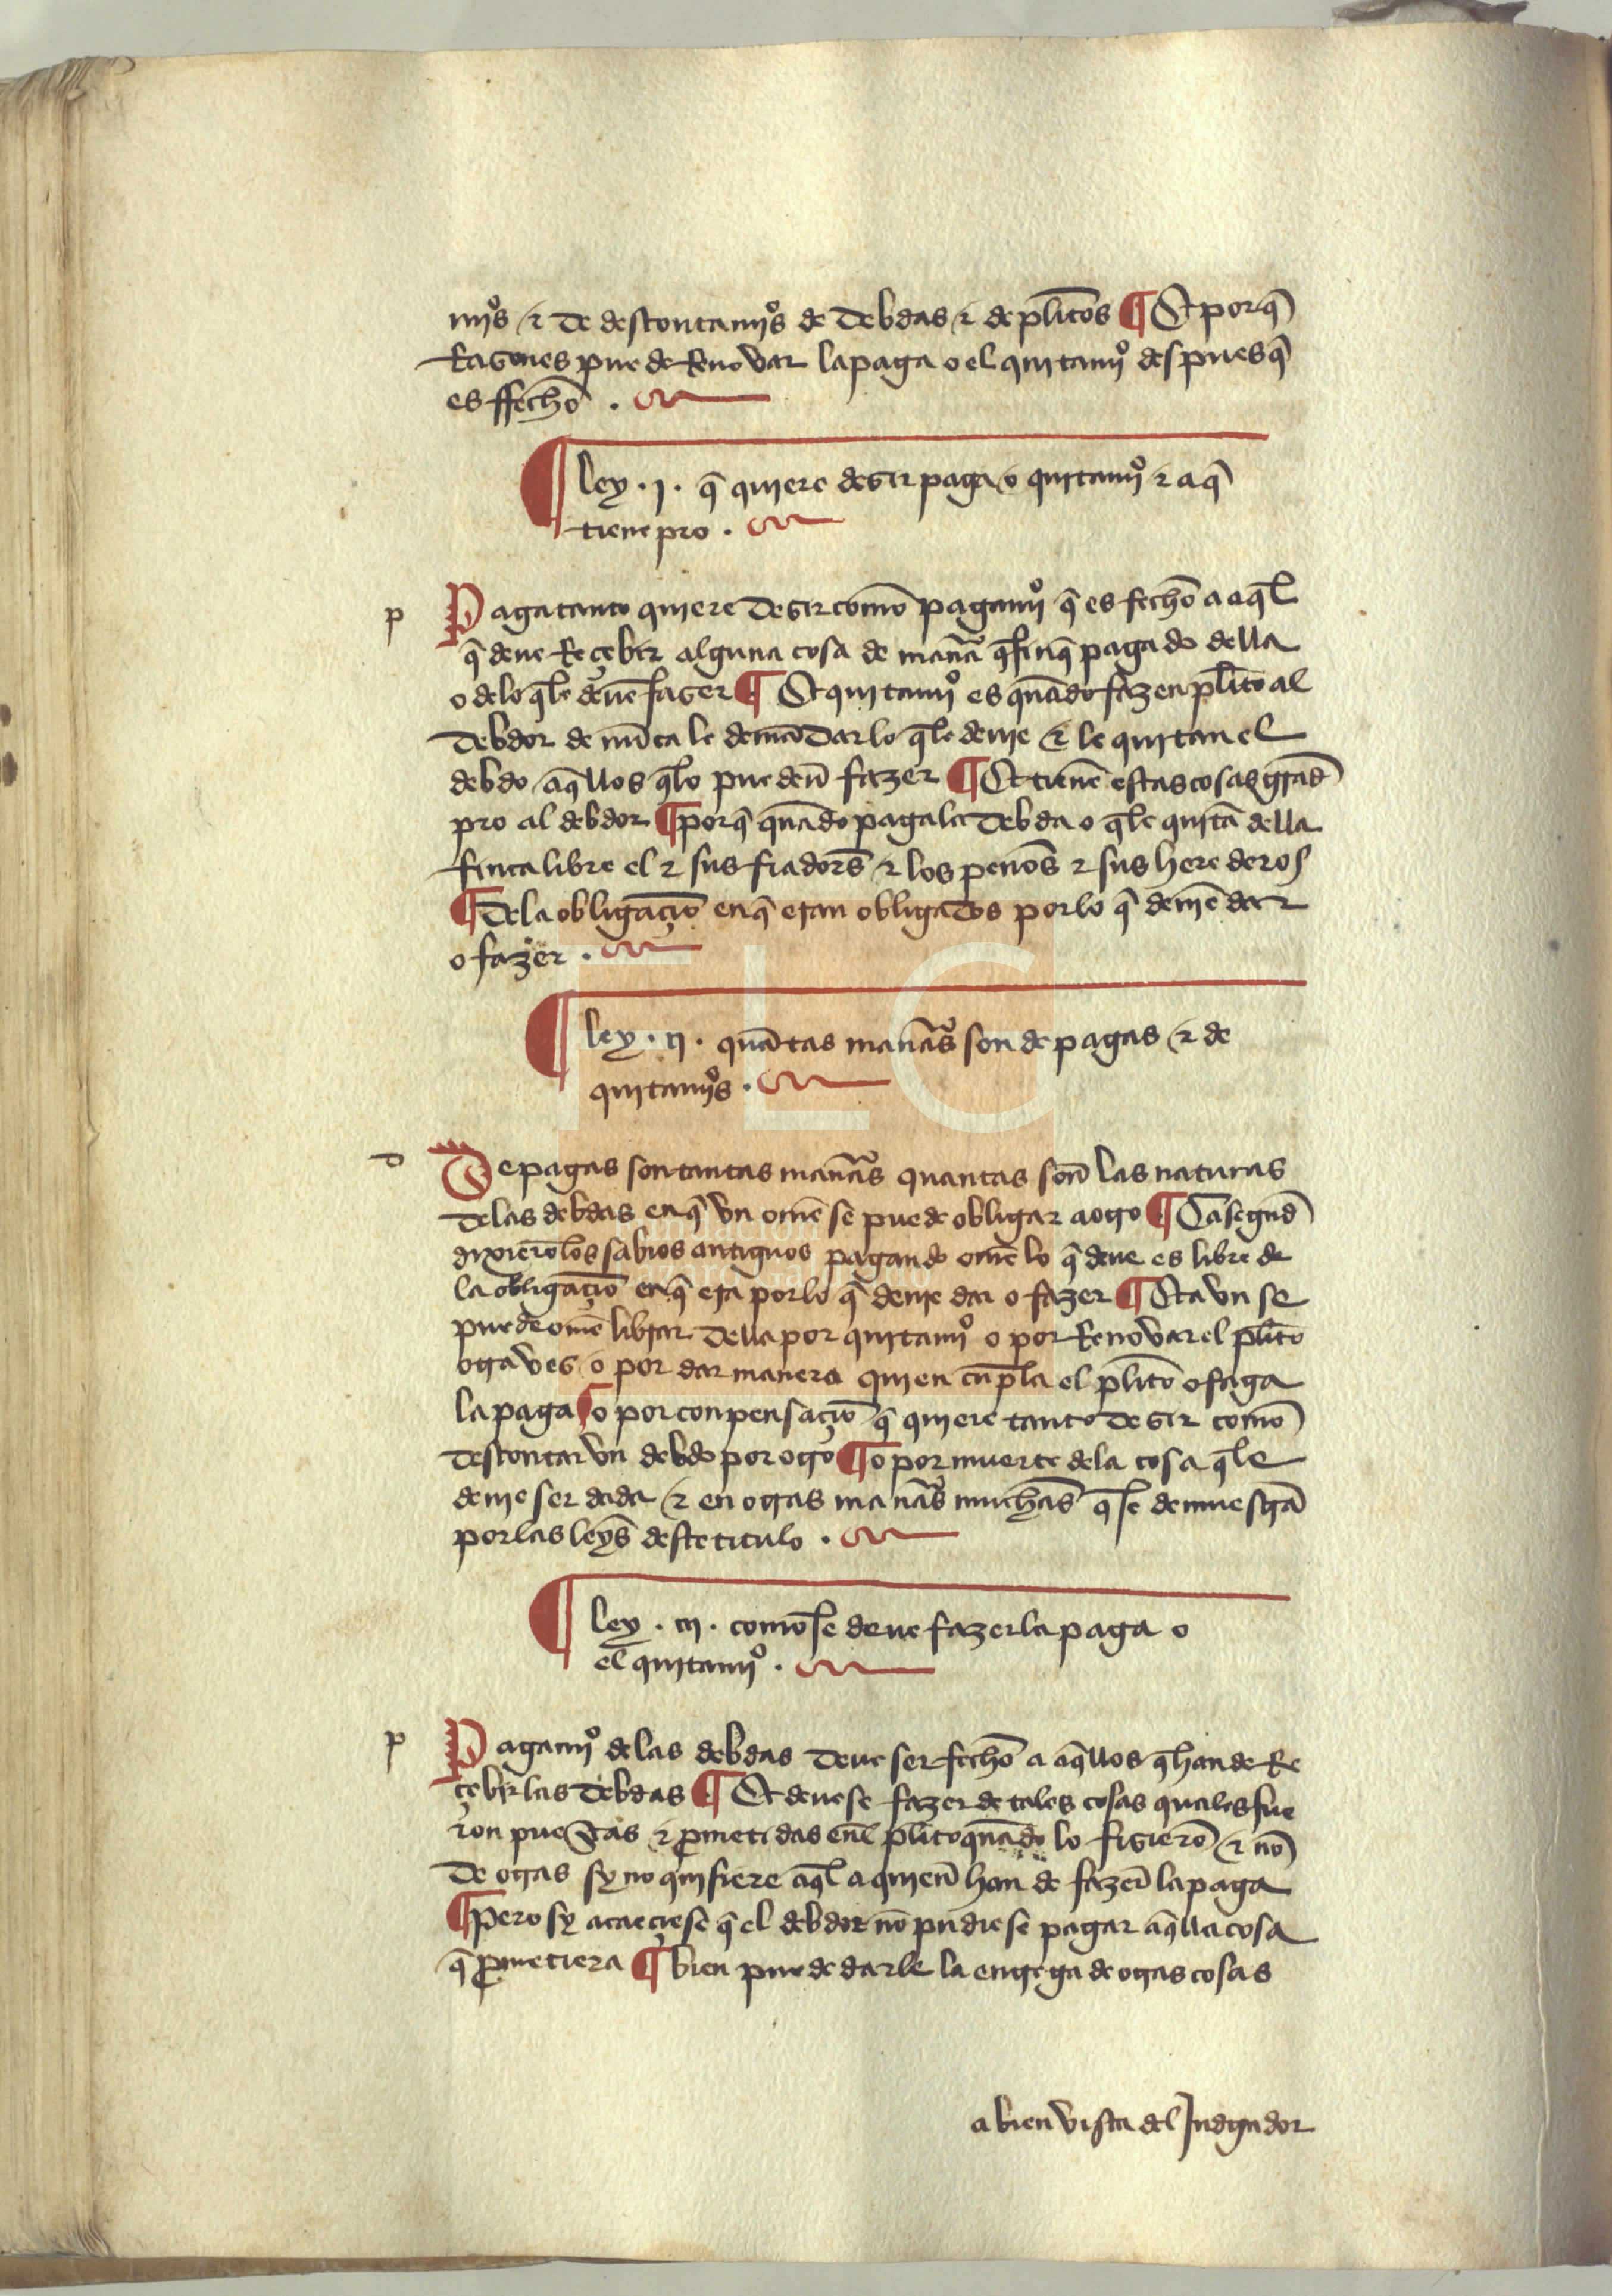 mjos & de descontamjos de debdas & de plitos ¶ Et por q̃
Razones puede Renovar la paga o el quitamjo despues q̃
es ffecho .
¶ ley . j . q̃ quiere dezir paga o quitamjo & a q̃
tiene pro .
p
Paga tanto quiere dezir como pagamjo q̃ es fecho a aq̃l
q̃ deue Reçebir alguna cosa de manã q̃ finq̃ pagado della
o de lo q̃ le deuẽ fazer ¶ Et quitamjo es quãdo fazen plito al
debdor de nũca le demãdar lo q̃ le deue & le quitan el
debdo aq̃llos q̃ lo puedeñ fazer ¶ Et tienẽ estas cosas grãd
pro al debdor ¶ por q̃ quãdo paga la debda o q̃ le quitã della
finca libre el & sus fiadors̃ & los peños & sus herederos
¶ De la obligaçiõ en q̃ eran obligados por lo q̃ deuiẽ dar
o fazer .
¶ ley . ij . quãtas manãs son de pagas & de
quitamjos .
d
De pagas son tantas manãs quantas soñ las naturas
de las debdas en q̃ vn omẽ se puede obligar a otro ¶ Ca segund
dixierõ los sabios antiguos pagando omẽ lo q̃ deue es libre de
la obligaçiõ en q̃ era por lo q̃ deuie dar o fazer ¶ Et avn se
puede omẽ librar della por quitamjo o por Renovar el plito
otra vez o por dar manera quien cũpla el plito o faga
la paga ¶ o por conpensaçiõ q̃ quiere tanto dezir como
descontar vn debdo por otro ¶ o por muerte de la cosa q̃ le
deuie ser dada & en otras manãs muchas q̃ se demuestrã
por las leys̃ deste titulo .
¶ ley . iij . como se deue fazer la paga o
el quitamjo .
p
Pagamjo de las debdas deue ser fecho a aq̃llos q̃ han de Re
çebir las debdas ¶ Et deuese fazer de tales cosas quales fue
ron puestas & p̃metidas enl̃ plito quãdo lo fizierõ & nõ
de otras sy no quisiere aq̃l a quieñ han de fazer la paga
¶ Pero sy acaeçiese q̃ el debdor nõ pudiese pagar aq̃lla cosa
q̃ p̃metiera ¶ bien puede darle la entrega de otras cosas
a bien vista del Judgador
FLC